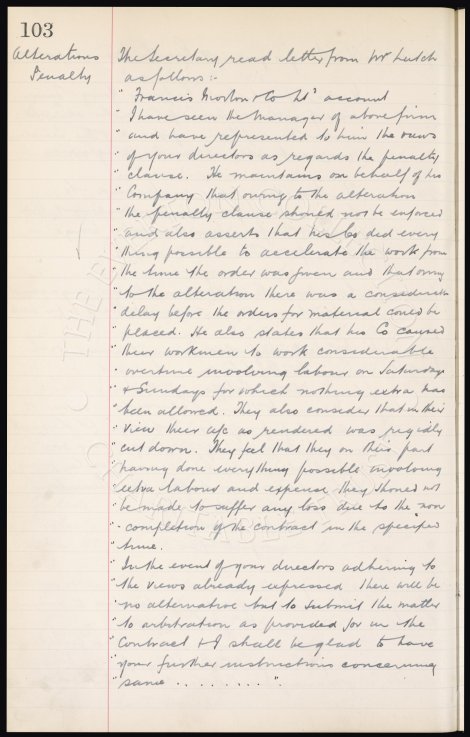 103
Alterations
Penalty
The Secretary read letter from Mr Leitch
as follows :-
" Francis Morton & Co Ld" account
" I have seen the Manager of above firm
" and have represented to him the views
" of your directors as regards the penalty
" clause. He maintains on behalf of his
" Company that owing to the alteration
" the penalty clause should not be enforced
" and also asserts that his Co did every
" thing possible to accelerate the work from
" the time the order was given and that owing
" to the alteration there was a considerable
" delay before the orders for material could be
" placed. He also states that his Co caused
" their workmen to work considerable
" overtime involving labour on Saturdays
" & Sundays for which nothing extra has
" been allowed. They also consider that in their
" view their a/c as rendered was rigidly
" cut down. They feel that they on their part
" having done everything possible involving
" extra labour and expense they should not
" be made to suffer any loss due to the non
" completion of the contract in the specified
" time.
" In the event of your directors adhering to
" the views already expressed there will be
" no alternative but to submit the matter
" to arbitration as provided for in the
" Contract & I shall be glad to have
" your further instructions concerning
" same . . . . . . . . "